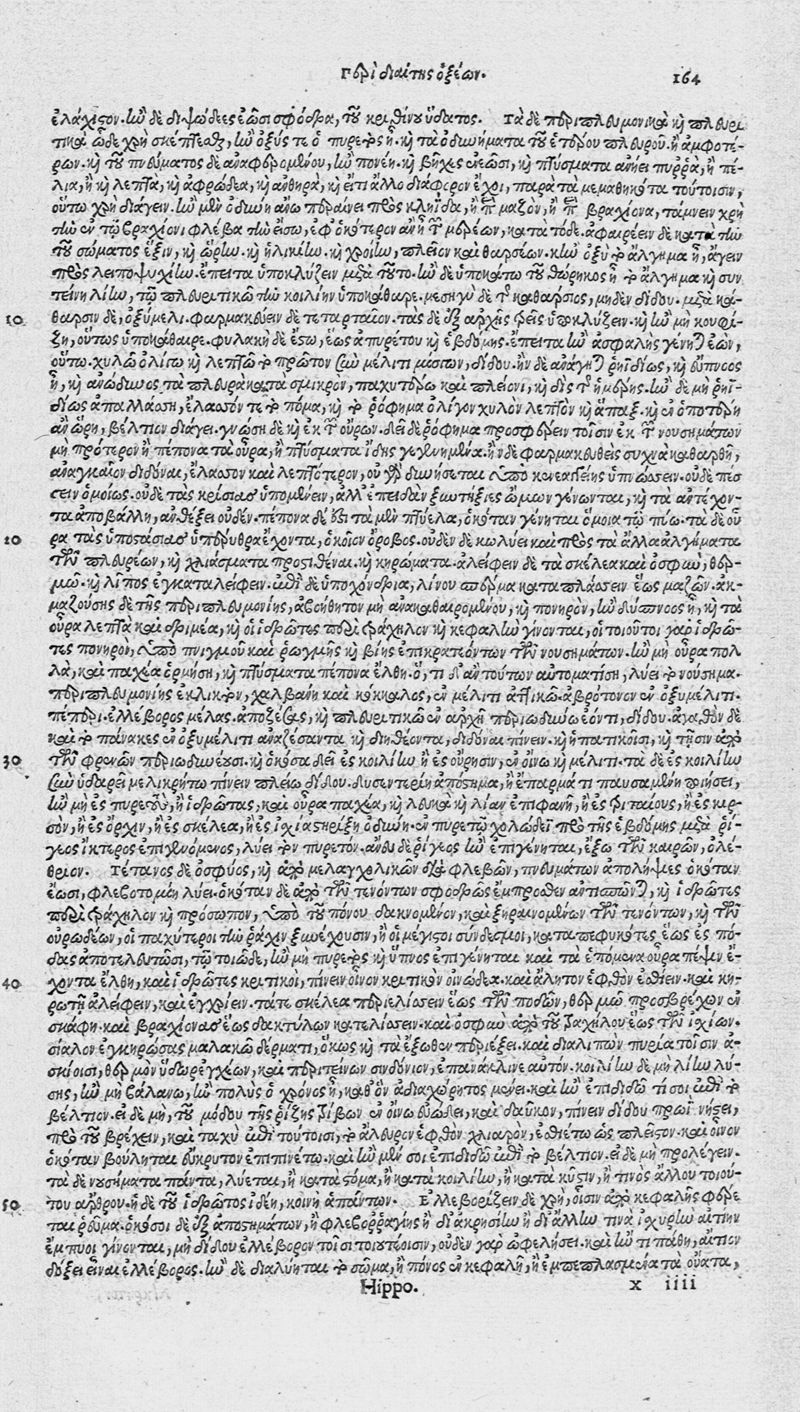 Περὶ διαίτης ὀξέων. 164
ἐλάχιστον. ἢν δὲ διψώδεες ἔωσι σφόδρα, τοῦ κριθίνου ὕδατος. Τὰ δὲ περιπλευμονικὰ καὶ πλευρι
τικὰ ὧδε χρὴ σκέπτεσθαι, ἢν ὀξύς τε ὁ πυρετὸς ᾖ. καὶ τὰ ὀδυνήματα τοῦ ἑτέρου πλευροῦ. ἢ ἀμφοτέ-
ρων. καὶ τοῦ πνεύματος δὲ ἀναφερομένου, ἢν πονέῃ. καὶ βῆχες ἐνέωσι, καὶ πτύσματα ἀνίει πυρρὰ, ἢ πέ-
λια, ἢ καὶ λεπτὰ, καὶ ἀφρώδεα, καὶ ἀνθηρὰ, καὶ εἴ τι ἄλλο διάφορον ἔχοι, παρὰ τὰ μεμαθηκότα τούτοισιν,
οὕτω χρὴ διάγειν. ἢν μὲν ὀδύνη ἄνω περαίνει πρὸς κληῖδα, ἢ περὶ μαζὸν, ἢ περὶ βραχίονα, τάμνειν χρὴ
τὴν ἐν τῷ βραχίονι φλέβα τὴν εἴσω, ἐφ' ὁκότερον ἂν ᾖ τῶν μερέων, κατὰ τόδε. ἀφαιρέειν δὲ κατὰ τὴν
τοῦ σώματος ἕξιν, καὶ ὥρην. καὶ ἡλικίην. καὶ χροίην, πλεῖον καὶ θαρσέων. κἢν ὀξὺ τὸ ἄλγημα ᾖ, ἄγειν
πρὸς λειποψυχίην. ἔπειτα ὑποκλύζειν μετὰ τοῦτο. ἢν δὲ ὑποκάτω τοῦ θώρηκος ᾖ τὸ ἄλγημα καὶ συν
τείνῃ λίην, τῷ πλευριτικῷ τὴν κοιλίην ὑποκάθαιρε. μεσηγὺ δὲ τῆς καθάρσιος, μηδὲν δίδου. μετὰ κά-
10 θαρσιν δὲ, ὀξύμελι. φαρμακεύειν δὲ τεταρταῖον. τὰς δὲ ἐξ ἀρχῆς τρεῖς ὑποκλύζειν. καὶ ἢν μὴ κουφί-
ζῃ, οὕτως ὑποκάθαιρε. φυλακὴ δὲ ἔστω, ἕως ἀπυρέτου καὶ ἑβδόμης. ἔπειτα ἢν ἀσφαλὴς γένηται ἐὼν,
οὕτω. χυλῷ ὀλίγῳ καὶ λεπτῷ τὸ πρῶτον σὺν μέλιτι μίσγων, δίδου. ἢν δὲ ἀνάγηται ῥηϊδίως, καὶ εὔπνοος
ᾖ, καὶ ἀνώδυνος τὰ πλευρὰ κατὰ σμικρὸν, παχυτέρῳ καὶ πλείονι, καὶ δὶς τῆς ἡμέρης. ἢν δὲ μὴ ῥηϊ-
δίως ἀπαλλάσσῃ, ἔλασσόν τε τὸ πόμα, καὶ τὸ ῥόφημα ὀλίγον χυλὸν λεπτὸν καὶ ἅπαξ. καὶ ἐν ὁποτέρῃ
ἂν ὥρῃ, βέλτιον διάγει. γνώσῃ δὲ καὶ ἐκ τῶν οὔρων. δεῖ δὲ ῥόφημα προσφέρειν τοῖσιν ἐκ τῶν νουσημάτων
μὴ πρότερον ἢ πέπονα τὰ οὖρα, ἢ πτύσματα ἴδῃς γεγενημένα. ἢν δὲ φαρμακευθεὶς συχνὰ καθαρθῇ,
ἀναγκαῖον διδόναι, ἔλασσον καὶ λεπτότερον, οὐ γὰρ δυνήσεται ὑπὸ κενεαγγείης ὑπνώσσειν. οὐδὲ πέσ
σειν ὁμοίως. οὐδὲ τὰς κρίσιας ὑπομένειν, ἀλλ' ἐπειδὰν ξυντήξιες ὠμῶν γένωνται, καὶ τὰ ἀντέχον-
τα ἀποβάλλῃ, ἀνθέξει οὐδέν. πέπονα δέ ἐστι τὰ μὲν πτύελα, ὁκόταν γένηται ὅμοια τῷ πύῳ. τὰ δὲ οὖ
20 ρα τὰς ὑποστάσιας ὑπέρυθρα ἔχοντα, ὁκοῖον ὄροβος. οὐδὲν δὲ κωλύει καὶ πρὸς τὰ ἄλλα ἀλγήματα
τῶν πλευρέων, καὶ χλιάσματα προστιθέναι. καὶ κηρώματα. ἀλείφειν δὲ τὰ σκέλεα καὶ ὀσφῦν, θερ-
μῷ. καὶ λίπος ἐγκαταλείφειν. ἐπὶ δὲ ὑποχόνδρια, λίνου σπέρμα καταπλάσσειν ἕως μαζῶν. ἀκ-
μαζούσης δὲ τῆς περιπλευμονίης, ἀβοήθητον μὴ ἀνακαθαιρομένου, καὶ πονηρὸν, ἢν δύσπνοος ᾖ, καὶ τὰ
οὖρα λεπτὰ καὶ δριμέα, καὶ οἱ ἱδρῶτες περὶ τράχηλον καὶ κεφαλὴν γίνονται, οἱ τοιοῦτοι γὰρ ἱδρῶ-
τες πονηροὶ, ὑπὸ πνιγμοῦ καὶ ῥωγμῆς καὶ βίης ἐπικρατεόντων τῶν νουσημάτων. ἢν μὴ οὖρα πολ
λὰ, καὶ παχέα ὁρμήσῃ, καὶ πτύσματα πέπονα ἔλθῃ. ὅ, τι δ' ἂν τούτων αὐτοματίσῃ, λύει τὸ νούσημα.
περιπλευμονίης ἐκλικτὸν, χαλβάνη καὶ κόκκαλος, ἐν μέλιτι ἀττικῷ. ἀβρότονον ἐν ὀξυμέλιτι.
πέπερι. ἐλλέβορος μέλας. ἀποζέσας, καὶ πλευριτικῷ ἐν ἀρχῇ περιωδύνῳ ἐόντι, δίδου. ἀγαθὸν δὲ
καὶ τὸ πάνακες ἐν ὀξυμέλιτι ἀναζέσαντα καὶ διηθέοντα, διδόναι πίνειν. καὶ ἡπατικοῖσι, καὶ τῇσιν ἀπὸ
30 τῶν φρενῶν περιωδυνέουσι. καὶ ὁκόσα δεῖ ἐς κοιλίην ἢ ἐς οὔρησιν, ἐν οἴνῳ καὶ μέλιτι. τὰ δὲ ἐς κοιλίην
σὺν ὑδαρεῖ μελικρήτῳ πίνειν πλείω δίδου. δυσεντερίη ἀπόστημα, ἢ ἔπαρμά τι παυσαμένη ποιήσει,
ἢν μὴ ἐς πυρετὸν, ἢ ἱδρῶτας, καὶ οὖρα παχέα, καὶ λευκὰ καὶ λίην ἐπιφανῆ, ἢ ἐς τριταίους, ἢ ἐς κιρ-
σὸν, ἢ ἐς ὄρχιν, ἢ ἐς σκέλεα, ἢ ἐς ἰσχία στηρίξῃ ὀδύνη. ἐν πυρετῷ χολώδεϊ πρὸ τῆς ἑβδόμης μετὰ ῥί-
γεος ἴκτερος ἐπιγενόμενος, λύει τὸν πυρετόν. ἄνευ δὲ ῥίγεος ἢν ἐπιγένηται, ἔξω τῶν καιρῶν, ὀλέ-
θριον. Τέτανος δὲ ὀσφύος, καὶ ἀπὸ μελαγχολικῶν διὰ φλεβῶν, πνευμάτων ἀπολήψιες ὁκόταν
ἔωσι, φλεβοτομίη λύει. ὁκόταν δὲ ἀπὸ τῶν τενόντων σφοδρῶς ἔμπροσθεν ἀντισπῶνται, καὶ ἱδρῶτες
περὶ τράχηλον καὶ πρόσωπον, ὑπὸ τοῦ πόνου δακνομένων, καὶ ξηραινομένων τῶν τενόντων, καὶ τῶν
οὐρωδέων, οἱ παχύτεροι τὴν ῥάχιν ξυνέχουσιν, ἢ οἱ μέγιστοι σύνδεσμοι, καταπεφυκότες ἕως ἐς πό-
δας ἀποτελευτῶσι, τῷ τοιῷδε, ἢν μὴ πυρετὸς καὶ ὕπνος ἐπιγένηται καὶ τὰ ἑπόμενα οὖρα πέψιν ἔ-
40 χοντα ἔλθῃ, καὶ ἱδρῶτες κριτικοὶ, πίνειν οἶνον κρητικὸν οἰνώδεα. καὶ ἄλητον ἑφθὸν ἐσθίειν. καὶ κη-
ρωτῇ ἀλείφειν, καὶ ἐγχρίειν. τά τε σκέλεα περιελίσσειν ἕως τῶν ποδῶν, θερμῷ προσβρέχων ἐν
σκάφῃ. καὶ βραχίονας ἕως δακτύλων κατελίσσειν. καὶ ὀσφῦν ἀπὸ τοῦ τραχήλου ἕως τῶν ἰσχίων.
σίαλον ἐγκηρώσας μαλακῷ δέρματι, ὅκως καὶ τὰ ἔξωθεν περιέξει. καὶ διαλιπὼν πυρία τοῖσιν ἀ-
σκίοισι, θερμὸν ὕδωρ ἐγχέων, καὶ περιτείνων σινδόνιον, ἐπανάκλινε αὐτόν. κοιλίην δὲ μὴ λίην λύ-
σῃς, ἢν μὴ βαλάνῳ, ἢν πολὺς ὁ χρόνος ᾖ, καθ' ὃν ἀδιαχώρητος μένει. καὶ ἢν ἐπιδιδῷ τί σοι ἐπὶ τὸ
βέλτιον. εἰ δὲ μὴ, τοῦ μόδου τῆς ῥίζης τρίβων ἐν οἴνῳ εὐώδει, καὶ δαῦκον, πίνειν δίδου πρωῒ νήστει,
πρὸ τοῦ βρέχειν, καὶ ταχὺ ἐπὶ τούτοισι, τὸ ἄλευρον ἑφθὸν χλιαρὸν, ἐσθιέτω ὡς πλεῖστον. καὶ οἶνον
ὁκόταν βούληται εὔκρητον ἐπιπινέτω. καὶ ἢν μέν σοι ἐπιδιδῷ ἐπὶ τὸ βέλτιον. εἰ δὲ μὴ προλέγειν.
τὰ δὲ νοσήματα πάντα, λύεται, ἢ κατὰ στόμα, ἢ κατὰ κοιλίην, ἢ κατὰ κύστιν, ἤ τινος ἄλλου τοιού-
50 του ἄρθρου. ἡ δὲ τοῦ ἱδρῶτος ἰδέη, κοινὴ ἁπάντων. Ἐλλεβορίζειν δὲ χρὴ, οἷσιν ἀπὸ κεφαλῆς φέρε
ται ῥεῦμα. ὁκόσοι δὲ ἐξ ἀποστημάτων, ἢ φλεβορραγίης ἢ δι' ἀκρησίην ἢ δι' ἄλλην τινὰ ἰσχυρὴν αἰτίην
ἔμπυοι γίνονται, μὴ δίδου ἐλλέβορον τοῖσι τοιουτέοισιν, οὐδὲν γὰρ ὠφελήσει. καὶ ἤν τι πάθῃ, αἴτιον
δόξει εἶναι ἐλλέβορος. ἢν δὲ διαλύηται τὸ σῶμα, ἢ πόνος ἐν κεφαλῇ, ἢ ἐμπεπλασμένα τὰ οὔατα,
Hippo. x iiii